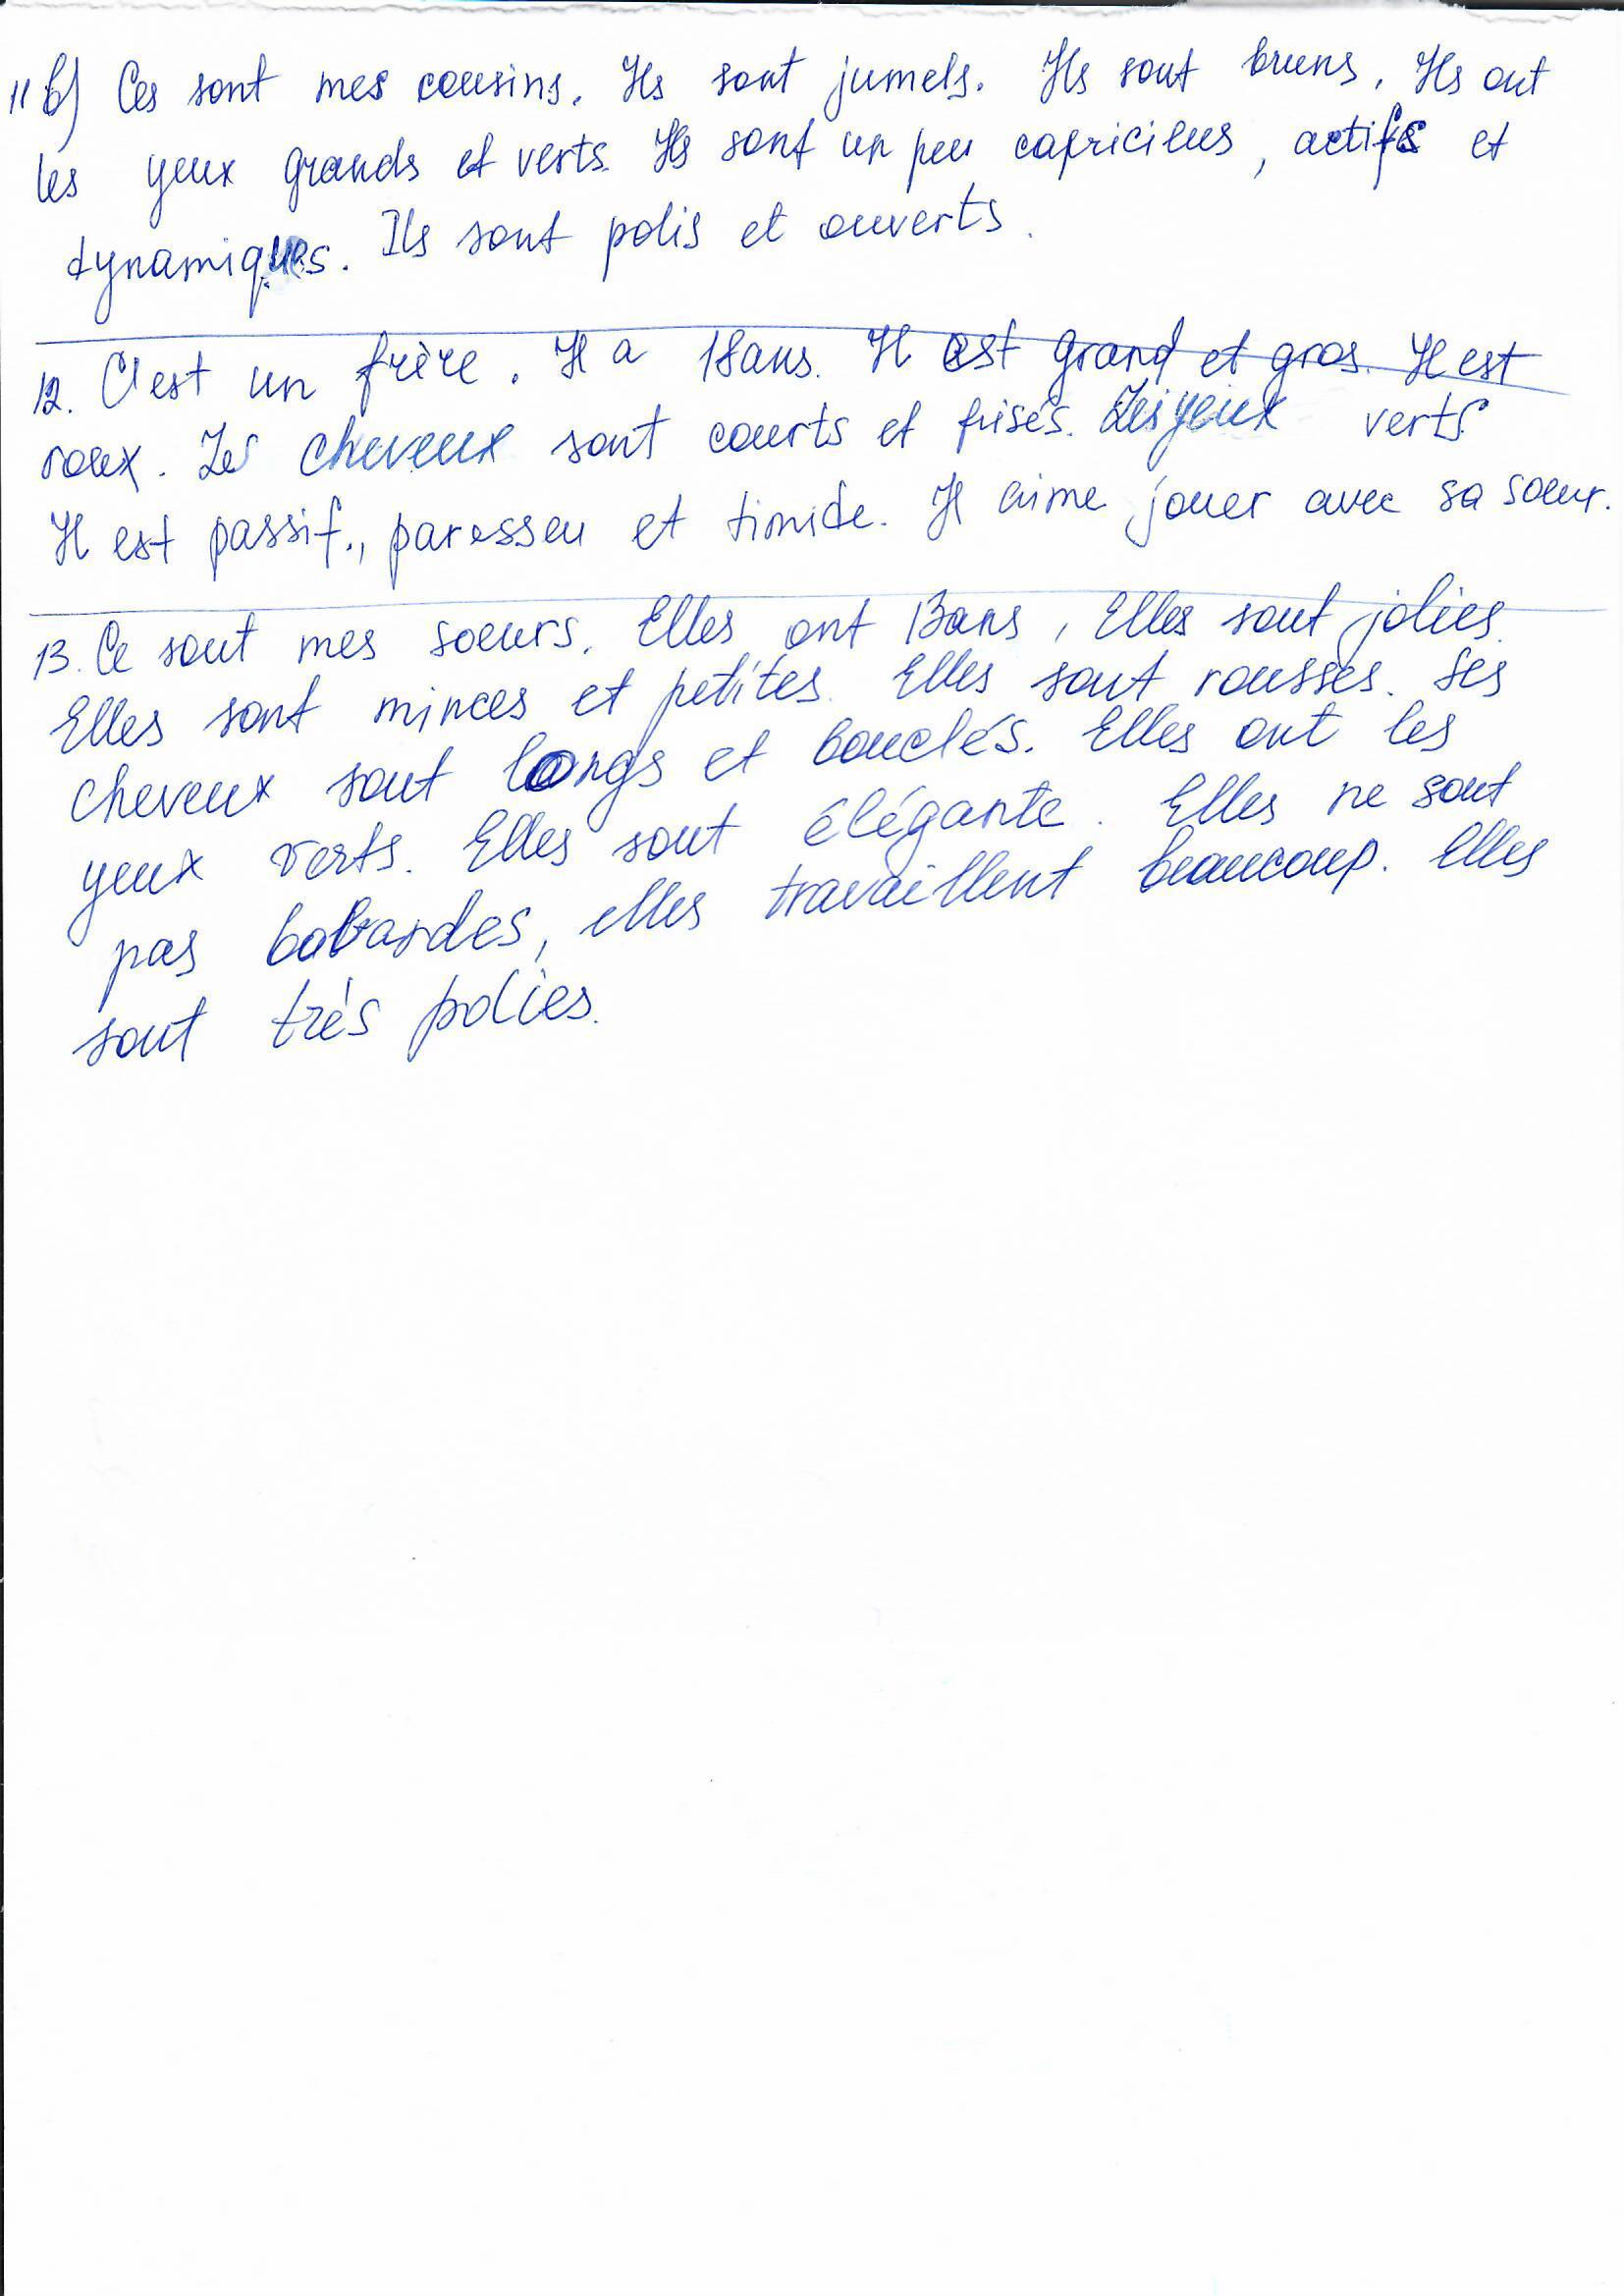 11 b) Ces sont mes cousins. Ils sont jumels. Ils sont bruns. Ils ont
les yeux grands et verts. Ils sont un peu capricieus, actifs et
dynamiques. Ils sont polis et ouverts.
12. C'est un frère. Il a 18 ans. Il est grand et gros. Il est
roux. Les cheveux sont courts et frisés. Les yeux verts
Il est passif., paresseu et timide. Il aime jouer avec sa soeur.
13. Ce sont mes soeurs. Elles ont 13 ans, Elles sont jolies.
Elles sont minces et petites. Elles sont rousses. Ses
cheveux sont longs et bouclés. Elles ont les
yeux verts. Elles sont élégante. Elles ne sont
pas babardes, elles travaillent beaucoup. Elles
sont trés polies.